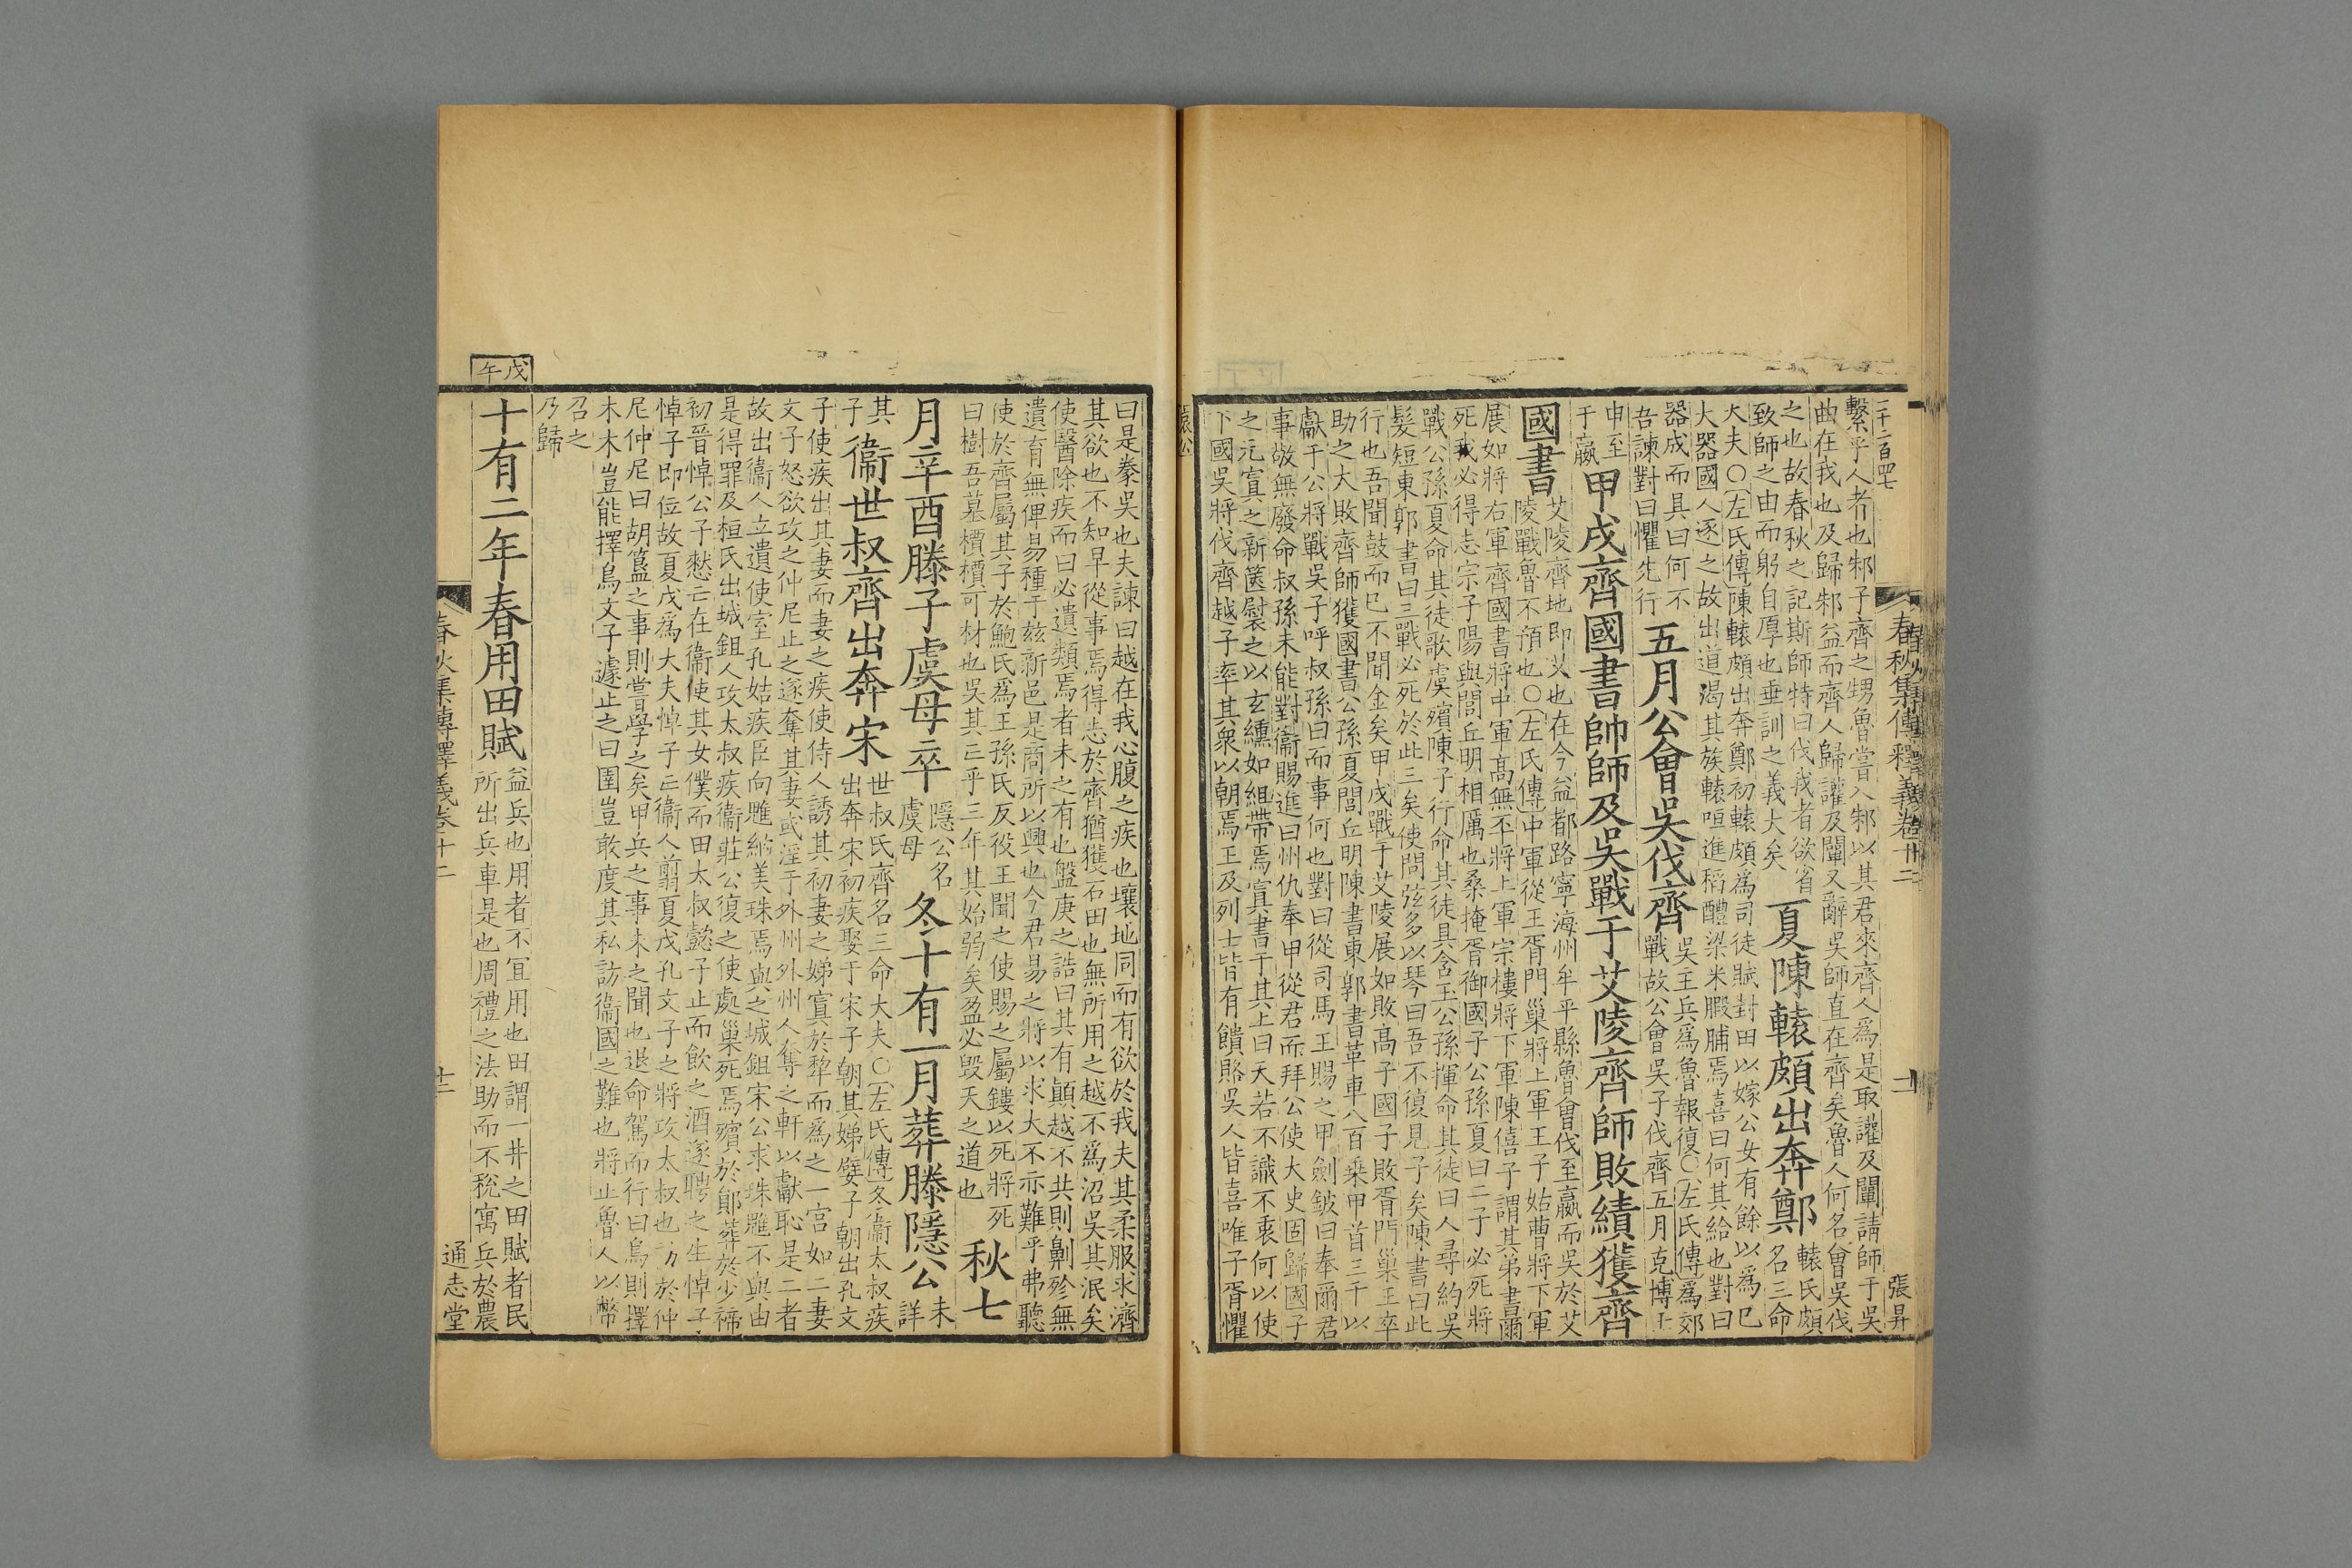 繫乎人者也邾子齊之甥魯嘗入邾以其君來齊人爲是取讙及闡請師于吳
曲在我也及歸邾益而齊人歸讙及闡又辭吳師直在齊矣魯人何名會吳伐
之也故春秋之記斯師特曰伐我者欲省
致師之由而躬自厚也垂訓之義大矣
夏陳轅頗出奔鄭
轅氏頗
名三命
大夫○左氏傳陳轅頗出奔鄭初轅頗爲司徒賦封田以嫁公女有餘以爲己
大器國人逐之故出道渴其族轅咺進稻醴粱糗腶脯焉喜曰何其給也對曰
器成而具曰何不
吾諫對曰懼先行
五月公會吳伐齊
吳主兵爲魯報復○左氏傳爲郊
戰故公會吳子伐齊五月克博壬
申至
于嬴
甲戌齊國書帥師及吳戰于艾陵齊師敗績獲齊
國書
艾陵齊地即艾也在今益都路寧海州牟平縣魯會伐至嬴而吳於艾
陵戰魯不預也○左氏傳中軍從王胥門巢將上軍王子姑曹將下軍
展如將右軍齊國書將中軍高無丕將上軍宗樓將下軍陳僖子謂其弟書爾
死我必得志宗子陽與閭丘明相厲也桑掩胥御國子公孫夏曰二子必死將
戰公孫夏命其徒歌虞殯陳子行命其徒具含玉公孫揮命其徒曰人尋約吳
髮短東郭書曰三戰必死於此三矣使問弦多以琴曰吾不復見子矣陳書曰此
行也吾聞鼓而已不聞金矣甲戌戰于艾陵展如敗高子國子敗胥門巢王卒
助之大敗齊師獲國書公孫夏閭丘明陳書東郭書革車八百乘甲首三千以
獻于公將戰吳子呼叔孫曰而事何也對曰從司馬王賜之甲劍鈹曰奉爾君
事敬無廢命叔孫未能對衞賜進曰州仇奉甲從君而拜公使大史固歸國子
之元寘之新篋褽之以玄纁加組帶焉寘書于其上曰天若不識不衷何以使
下國吳將伐齊越子率其衆以朝焉王及列士皆有饋賂吳人皆喜唯子胥懼
春秋集傳釋義卷十二
二
張昇
曰是豢吳也夫諫曰越在我心腹之疾也壤地同而有欲於我夫其柔服求濟
其欲也不知早從事焉得志於齊猶獲石田也無所用之越不爲沼吳其泯矣
使醫除疾而曰必遺類焉者未之有也盤庚之誥曰其有顚越不共則劓殄無
遺育無俾易種于兹新邑是商所以興也今君易之將以求大不亦難乎弗聽
使於齊屬其子於鮑氏爲王孫氏反役王聞之使賜之屬鏤以死將死
曰樹吾墓檟檟可材也吳其亡乎三年其始弱矣盈必毀天之道也
秋七
月辛酉滕子虞母卒
隱公名
虞母
冬十有一月葬滕隱公
未
詳
其
子
衞世叔齊出奔宋
世叔氏齊名三命大夫○左氏傳冬衞太叔疾
出奔宋初疾娶于宋子朝其娣嬖子朝出孔文
子使疾出其妻而妻之疾使侍人誘其初妻之娣寘於犂而爲之一宮如二妻
文子怒欲攻之仲尼止之遂奪其妻或淫于外州外州人奪之軒以獻恥是二者
故出衞人立遺使室孔姞疾臣向魋納美珠焉與之城鉏宋公求珠魋不與由
是得罪及桓氏出城鉏人攻太叔疾衞莊公復之使處巢死焉殯於鄖葬於少禘
初晉悼公子憖亡在衞使其女僕而田太叔懿子止而飲之酒遂聘之生悼子
悼子即位故夏戊爲大夫悼子亡衞人翦夏戊孔文子之將攻太叔也訪於仲
尼仲尼曰胡簋之事則嘗學之矣甲兵之事未之聞也退命駕而行曰鳥則擇
木木豈能擇鳥文子遽止之曰圉豈敢度其私訪衞國之難也將止魯人以幣
召之
乃歸
戊午
十有二年春用田賦
益兵也用者不宜用也田謂一井之田賦者民
所出兵車是也周禮之法助而不稅寓兵於農
春秋集傳釋義卷十二
通志堂